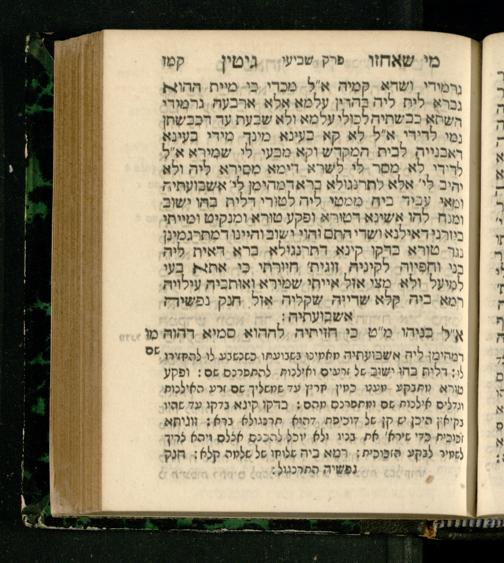 מי שאחזו פרק שביעי גיטין קמז
גרמידי ושדא קמיה א"ל מכדי כי מיית ההוא
גברא לית ליה בהדין עלמא אלא ארבעה גרמידי
השתא כבשתיה לכולי עלמא ולא שבעת עד דכבשתן
נמי לדידי א"ל לא קא בעינא מינך מידי בעינא
דאבנייה לבית המקדש וקא מבעי לי שמירא א"ל
לדידי לא מסר לי לשרא דימא מסירא ליה ולא
יהיב לי' אלא לתרנגולא ברא דמהימן לי' אשבועתיה
ומאי עביד ביה ממטי ליה לטורי דלית בהו ישוב
ומנח להו אשינא דטורא ופקע טורא ומנקיט ומייתי
ביזרני דאילנא ושדי התם והוי ישוב והיינו דמתרגמינן
נגר טורא בדקו קינא דתרנגולא ברא דאית ליה
בני וחפיוה לקיניה זוגית' חיורתי כי אתא בעי
למיעל ולא מצי אזל אייתי שמירא ואותביה עילויה
רמא ביה קלא שדייה שקליה אזל חנק נפשיה
אשבועתיה:
א"ל בניהו מ"ט כי חזיתיה לההוא סמיא דהוה
מו
שם
דמהימן ליה אשבועתיה מאמינו בשבועתו כשנשבע לו להחזירו
לו: דלית בהו ישוב של זרעים ואילנות להתפרנס שם: ופקע
טורא מתבקע מעט כמין חריץ עד שמשליך שם זרע האילנות
וגדלים אילנות שם ומתפרנסים מהם: בדקו קינא בדקו עד שהיו
נקיאין היכן יש קן של דוכיפת דהוא תרנגולא ברא: זוגיתא
זכוכית כדי שיראה את בניו ולא יוכל להכנס אצלם ויהא צריך
לשמיר לבקע הזכוכית: רמא ביה שלוחו של שלמה קלא: חנק
נפשיה התרנגול: